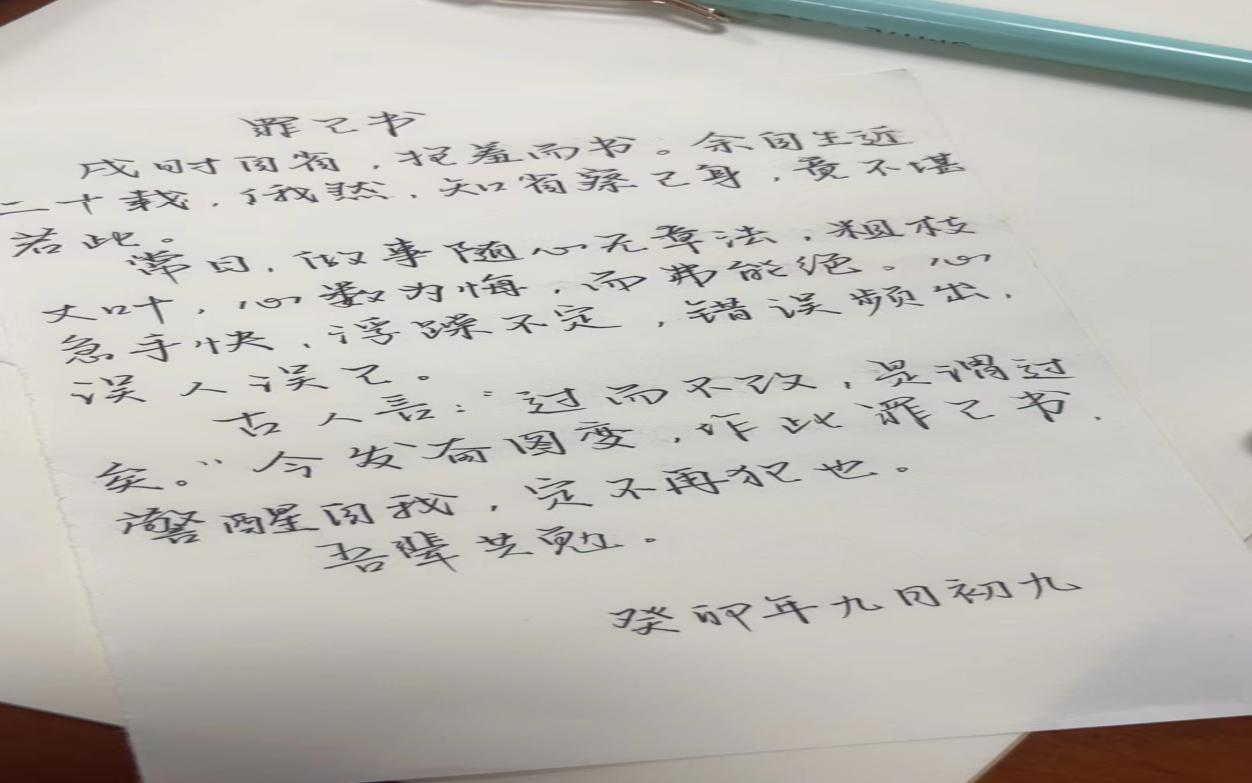 罪己书
戌时自省，抱羞而书。余自生近
二十载，俄然，知省察己身，竟不堪
若此。
常日，做事随心无章法，粗枝
大叶，心数为悔，而弗能绝。心
急手快，浮躁不定，错误频出，
误人误己。
古人言：“过而不改，是谓过
矣。”今发奋图变，作此罪己书，
警醒自我，定不再犯也。
吾辈共勉。
癸卯年九月初九